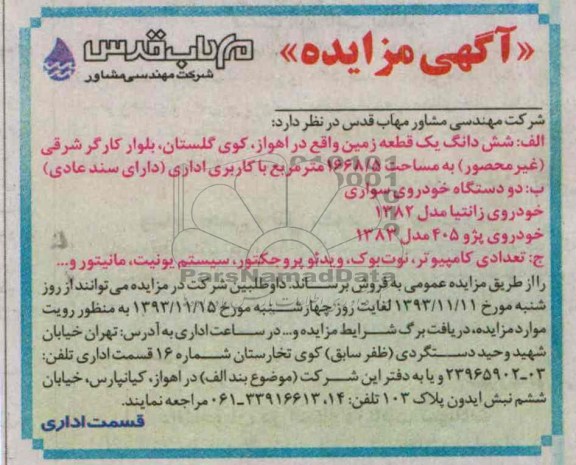 «آگهی مزایده»
مهاب قدس
شرکت مهندسی مشاور
شرکت مهندسی مشاور مهاب قدس در نظر دارد:
الف: شش دانگ یک قطعه زمین واقع در اهواز، کوی گلستان، بلوار کارگر شرقی
(غیر محصور) به مساحت ۱۶۶۸/۵ مترمربع با کاربری اداری (دارای سند عادی)
ب: دو دستگاه خودروی سواری
خودروی زانتیا مدل ۱۳۸۲
خودروی پژو ۴۰۵ مدل ۱۳۸۳
ج: تعدادی کامپیوتر، نوت‌بوک، ویدئو پروجکتور، سیستم یونیت، مانیتور و...
ParsNamadData
را از طریق مزایده عمومی به فروش برساند. داوطلبین شرکت در مزایده می‌توانند از روز
شنبه مورخ ۱۳۹۳/۱۱/۱۱ لغایت روز چهارشنبه مورخ ۱۳۹۳/۱۱/۱۵ به منظور رویت
موارد مزایده، دریافت برگ شرایط مزایده و... در ساعات اداری به آدرس: تهران خیابان
شهید وحید دستگردی (ظفر سابق) کوی تخارستان شماره ۱۶ قسمت اداری تلفن:
۰۳-۲۳۹۶۵۹۰۲ و یا به دفتر این شرکت (موضوع بند الف) در اهواز، کیانپارس، خیابان
ششم نبش ایدون پلاک ۱۰۳ تلفن: ۱۴، ۳۳۹۱۶۶۱۳-۰۶۱ مراجعه نمایند.
قسمت اداری